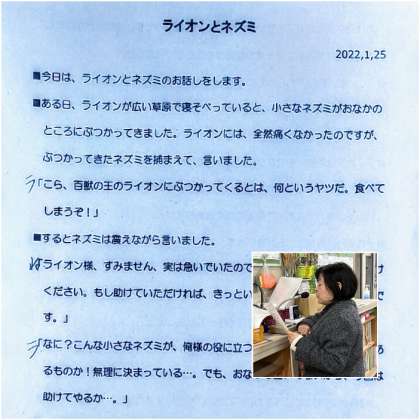 ライオンとネズミ
2022,1,25
■今日は、ライオンとネズミのお話しをします。
■ある日、ライオンが広い草原で寝そべっていると、小さなネズミがおなかの
ところにぶつかってきました。ライオンには、全然痛くなかったのですが、
ぶつかってきたネズミを捕まえて、言いました。
ラ「こら、百獣の王のライオンにぶつかってくるとは、何というヤツだ。食べて
しまうぞ！」
■するとネズミは震えながら言いました。
ライオン様、すみません、実は急いでいたので
ください。もし助けていただければ、きっとい
す。」
ラ「なに？こんな小さなネズミが、俺様の役に立つ
るものか！無理に決まっている…。でも、おな
助けてやるか…。」